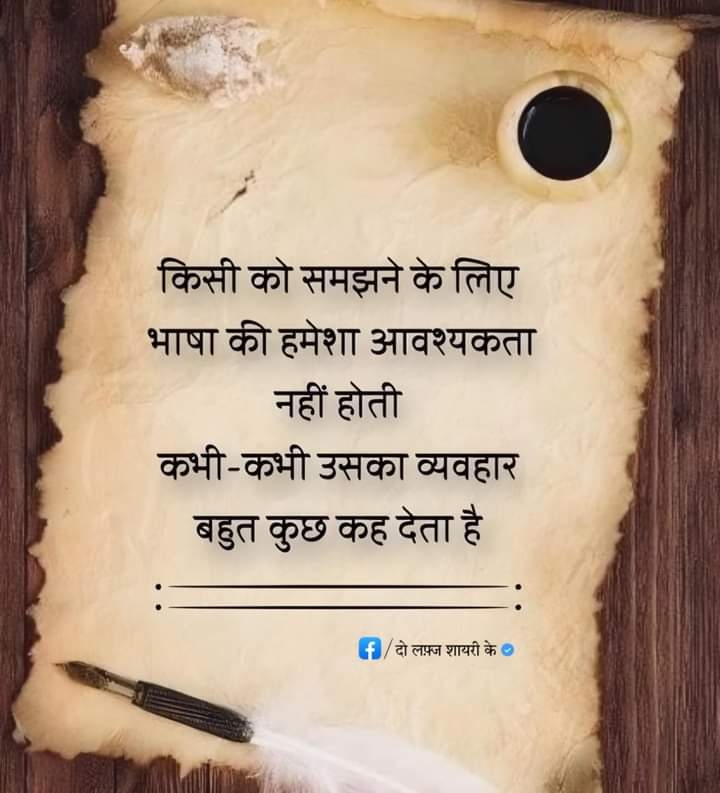 किसी को समझने के लिए
भाषा की हमेशा आवश्यकता
नहीं होती
कभी-कभी उसका व्यवहार
बहुत कुछ कह देता है
f/दो लफ़्ज शायरी के